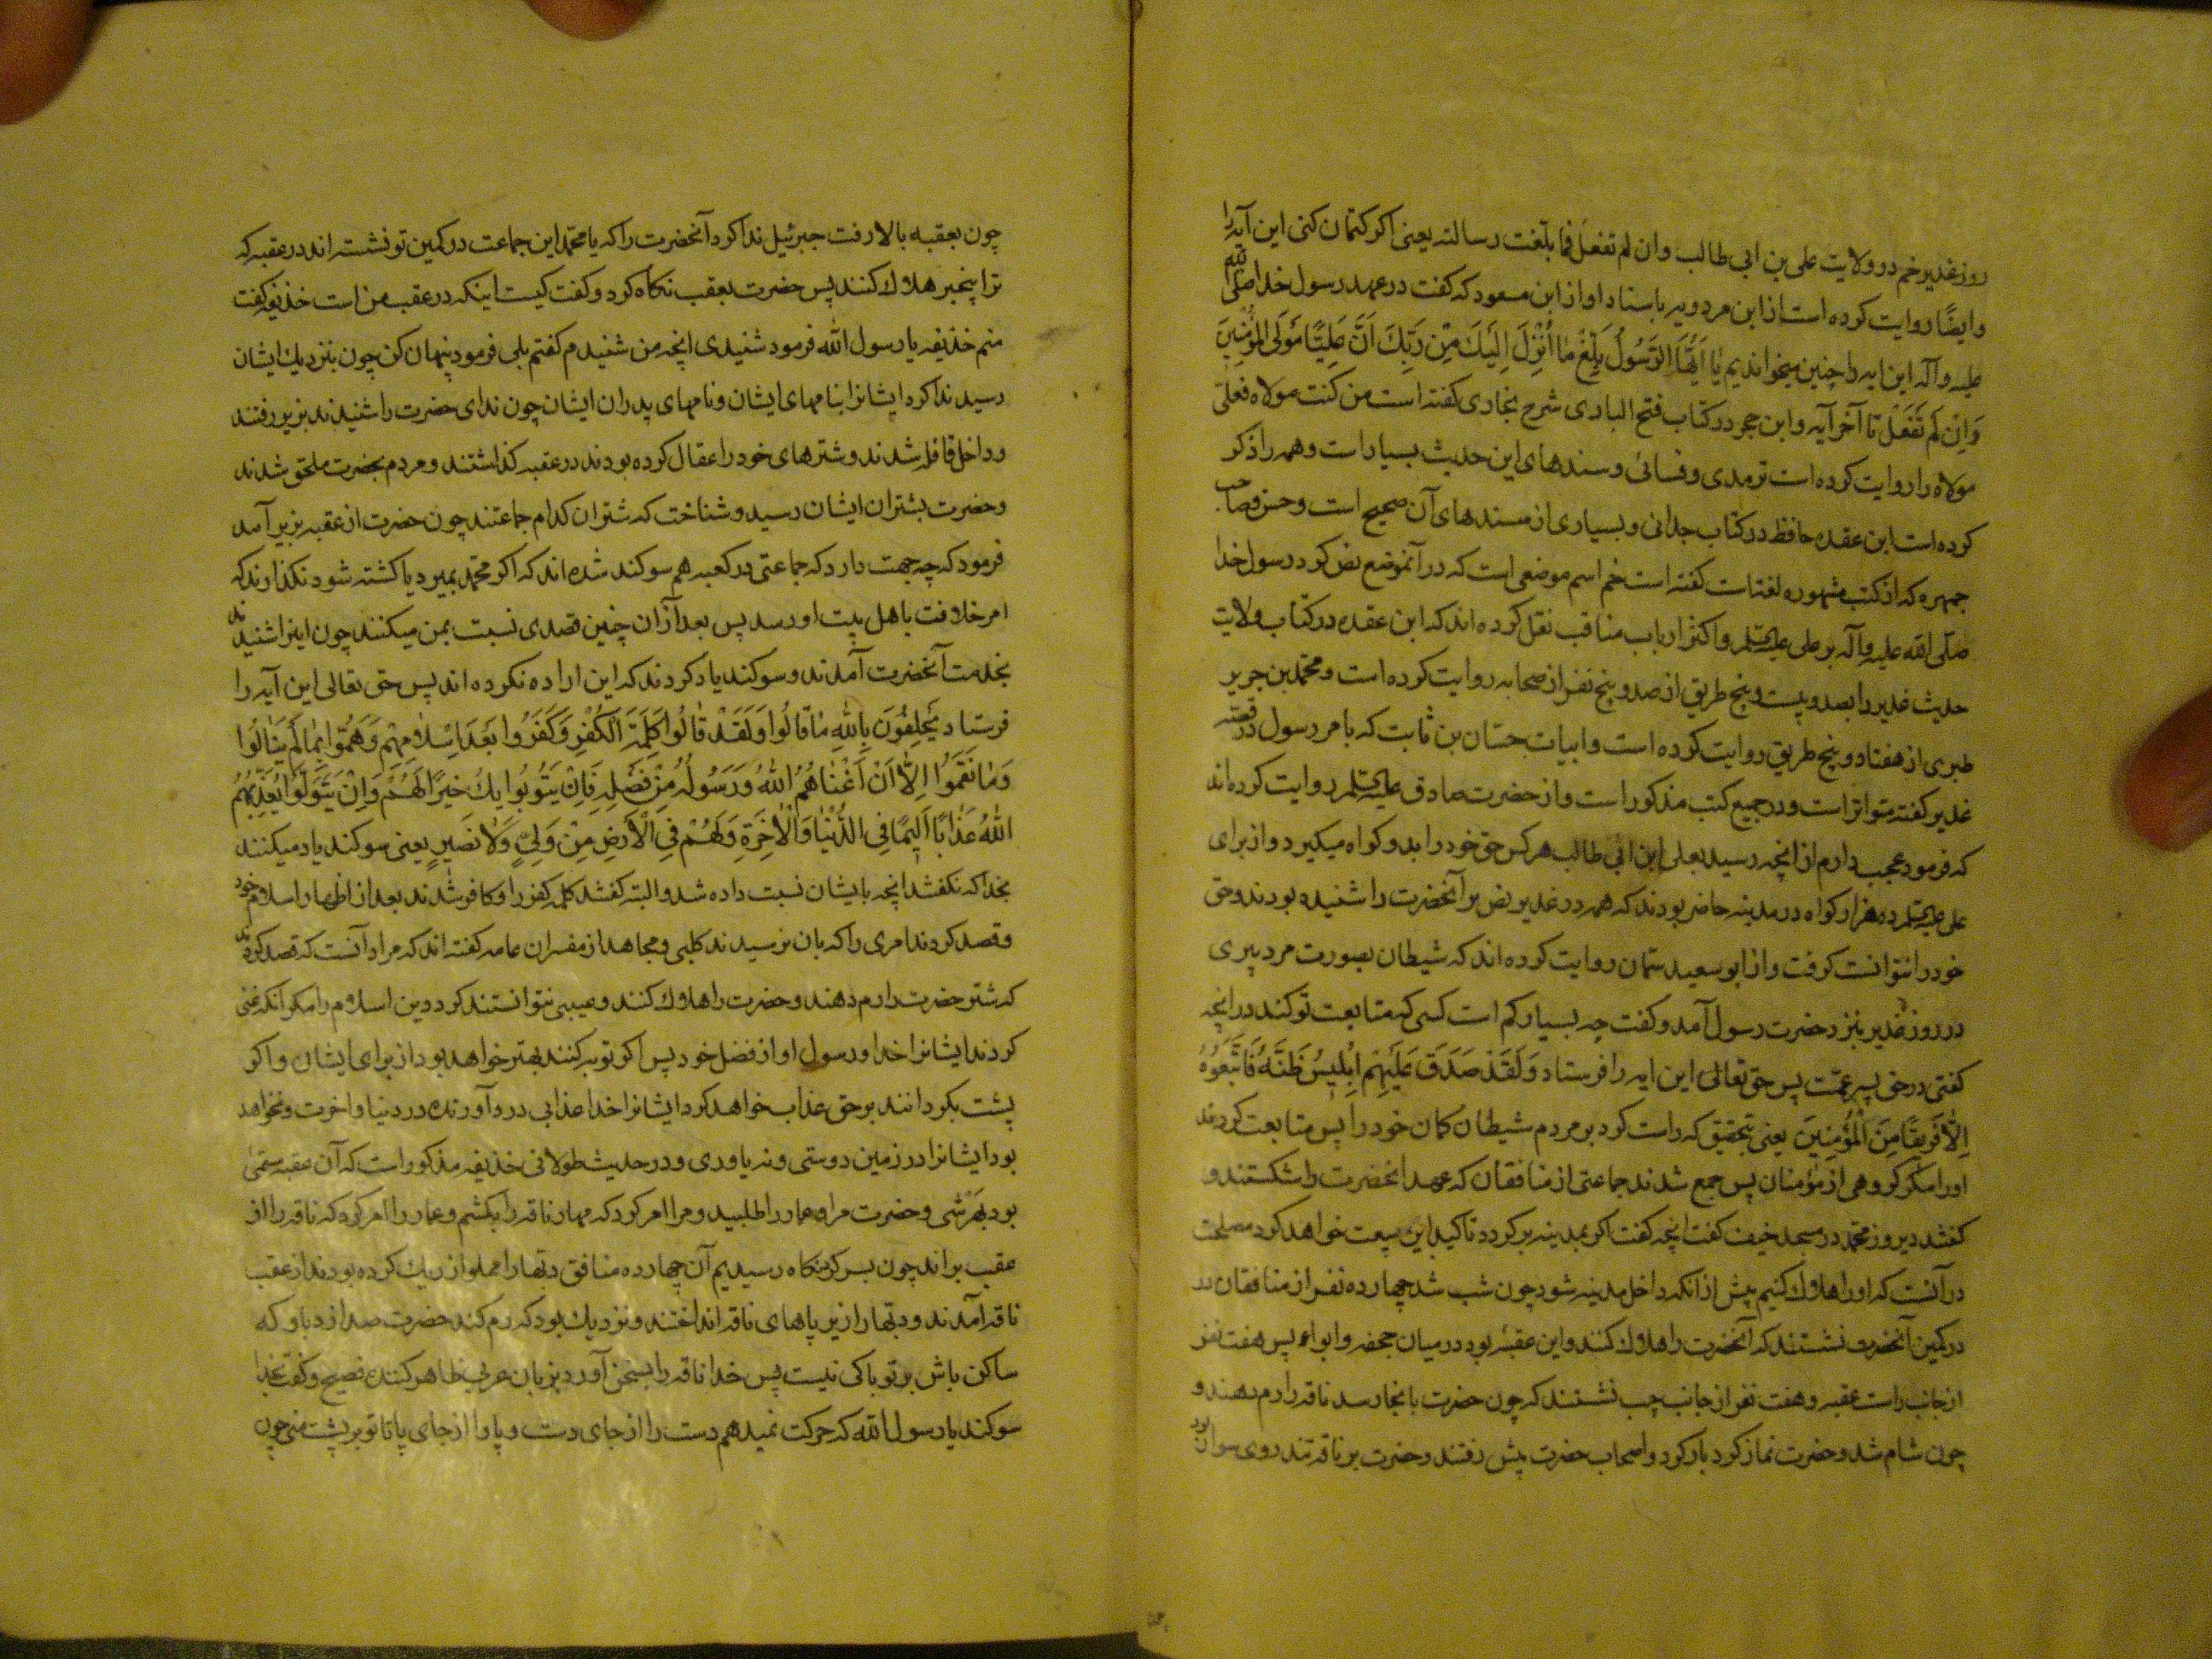 روز غدیر خم در ولایت علی بن ابی طالب وان لم تفعل فما بلغت رسالته یعنی اکر کتمان کنی این آیه را
وایضًا روایت کرده است از ابن مردویه باسناد او از ابن مسعود که کفت در عهد رسول خدا صلی الله
علیه وآله این ایه را چنین میخواندیم یٰا اَیُّهَا الرَّسُولُ بَلِّغْ مٰا اُنْزِلَ اِلَیْكَ مِنْ رَبِّكَ اَنَّ عَلِیًّا مَوْلَی المُؤْمِنِینَ
وَاِنْ لَمْ تَفْعَلْ تا آخر آیه وابن حجر در کتاب فتح الباری شرح بخاری کفته است من کنت مولاه فعلی
مولاه را روایت کرده است ترمدی و نسائی و سندهای این حدیث بسیار است وهمه را ذکر
کرده است ابن عقده حافظ در کتاب جدائی و بسیاری از مسندهای آن صحیح است وحسن وصاحب
جمهره که از کتب مشهوره لغتات کفته است خم اسم موضعی است که در آنموضع نص کرد رسول خدا
صلی الله علیه وآله بر علی علیه السلم واکثر ارباب مناقب نقل کرده اند که ابن عقده در کتاب ولایت
حدیث غدیر را بصد و بیست و پنج طریق از صد و پنج نفر از صحابه روایت کرده است و محمد بن جریر
طبری از هفتاد و پنج طریق روایت کرده است وابیات حسّان بن ثابت که بامر رسول در قصه
غدیر کفته متواتر است ودر جمیع کتب مذکور است واز حضرت صادق علیه السلم روایت کرده اند
که فرمود عجب دارم از انچه رسید بعلی ابن ابی طالب هر کس حق خود را بدو کواه میکیرد واز برای
علی علیه السلم ده هزار کواه در مدینه حاضر بودند که همه در غدیر نص بر آنحضرت را شنیده بودند وحق
خود را نتوانست کرفت واز ابو سعید سمّان روایت کرده اند که شیطان بصورت مرد پیری
در روز غدیر بنزد حضرت رسول آمد و کفت چه بسیار کم است کسی که متابعت تو کند در انچه
کفتی در حق پسر عمّت پس حق تعالی این ایه را فرستاد وَلَقَدْ صَدَّقَ عَلَیْهِمْ اِبْلِیسُ ظَنَّهُ فَاتَّبَعُوهُ
اِلّٰا فَرِیقًا مِنَ الْمُؤْمِنِینَ یعنی بتحقیق که راست کرد بر مردم شیطان کمان خود را پس متابعت کردند
اورا مکر کروهی از مؤمنان پس جمع شدند جماعتی از منافقان که عهد انحضرت را شکستند و
کفتند دیروز محمد در مسجد خیف کفت انچه کفت اکر بمدینه بر کردد تاکید این بیعت خواهد کرد مصلحت
در آنست که اورا هلاك کنیم پیش از انکه داخل مدینه شود چون شب شد چهارده نفر از منافقان
در کمین آنحضرت نشستند که آنحضرت را هلاك کنند واین عقبه بود در میان جحفه وابواء پس هفت نفر
از جانب راست عقبه و هفت نفر از جانب چپ نشستند که چون حضرت بانجا رسد ناقه را رم دهند و
چون شام شد وحضرت نماز کرد بار کرد واصحاب حضرت پیش رفتند وحضرت بر ناقه تند روی سوار بود
چون بعقبه بالا رفت جبرئیل ندا کرد آنحضرت را که یا محمد این جماعت در کمین تو نشسته اند در عقبه که
ترا بیخبر هلاك کنند پس حضرت بعقب نکاه کرد و کفت کیست اینکه در عقب من است حذیفه کفت
منم حذیفه یا رسول الله فرمود شنیدی انچه من شنیدم کفتم بلی فرمود پنهان کن چون بنزدیك ایشان
رسید ندا کرد ایشانرا بنامهای ایشان ونامهای پدران ایشان چون ندای حضرت را شنیدند بزیر رفتند
وداخل قافله شدند وشترهای خود را عقال کرده بودند در عقبه کذاشتند ومردم بحضرت ملحق شدند
وحضرت بشتران ایشان رسید وشناخت که شتران کدام جماعتند چون حضرت از عقبه بزیر آمد
فرمود که چه جهت دارد که جماعتی در کعبه هم سوکند شده اند که اکر محمد بمیرد یا کشته شود نکذارند که
امر خلافت باهل بیت او رسد پس بعد از آن چنین قصدی نسبت بمن میکنند چون اینرا شنیدند
بخدمت آنحضرت آمدند وسوکند یاد کردند که این اراده نکرده اند پس حق تعالی این آیه را
فرستاد یَحْلِفُونَ بِاللّٰهِ مٰا قٰالُوا وَلَقَدْ قٰالُوا کَلِمَةَ الْکُفْرِ وَکَفَرُوا بَعْدَ اِسْلٰامِهِمْ وَهَمُّوا بِمٰا لَمْ یَنٰالُوا
وَمٰا نَقَمُوا اِلّٰا اَنْ اَغْنٰاهُمُ اللّٰهُ وَرَسُولُهُ مِنْ فَضْلِهِ فَاِنْ یَتُوبُوا یَكُ خَیْرًا لَهُمْ وَاِنْ یَتَوَلَّوْا یُعَذِّبْهُمُ
اللّٰهُ عَذٰابًا اَلِیمًا فِی الدُّنْیٰا وَالْاٰخِرَةِ وَلَهُمْ فِی الْاَرْضِ مِنْ وَلِیٍّ وَلٰا نَصِیرٍ یعنی سوکند یاد میکنند
بخدا که نکفتند انچه بایشان نسبت داده شد والبته کفتند کلمه کفر را وکافر شدند بعد از اظهار اسلام خود
وقصد کردند امری را که بان نرسیدند کلبی ومجاهد از مفسران عامه کفته اند که مراد آنست که قصد کردند
که شتر حضرت را رم دهند وحضرت را هلاك کنند وعیبی نتوانستند کرد دین اسلام را مکر آنکه غنی
کردند ایشانرا خدا ورسول او از فضل خود پس اکر توبه کنند بهتر خواهد بود از برای ایشان واکر
پشت بکردانند بر حق عذاب خواهد کرد ایشانرا خدا عذابی درد آورنده در دنیا واخرت ونخواهد
بود ایشانرا در زمین دوستی ونه یاوری ودر حدیث طولانی حذیفه مذکور است که آن عقبه مسمّی
بود بهَرْشی وحضرت مرا وعمار را طلبید ومرا امر کرد که مهار ناقه را بکشم وعمار را امر کرد که ناقه را از
عقب براند چون بسر کردنکاه رسیدیم آن چهارده منافق دبّهارا مملو از ریك کرده بودند از عقب
ناقه آمدند ودبّهارا زیر پاهای ناقه انداختند ونزدیك بود که رم کند حضرت صدا زد باو که
ساکن باش بر تو باکی نیست پس خدا ناقه را بسخن آورد بزبان عربی ظاهر کننده فصیح و کفت بخدا
سوکند یا رسول الله که حرکت نمیدهم دست را از جای دست وپا را از جای پا تا تو بر پشت منی چون